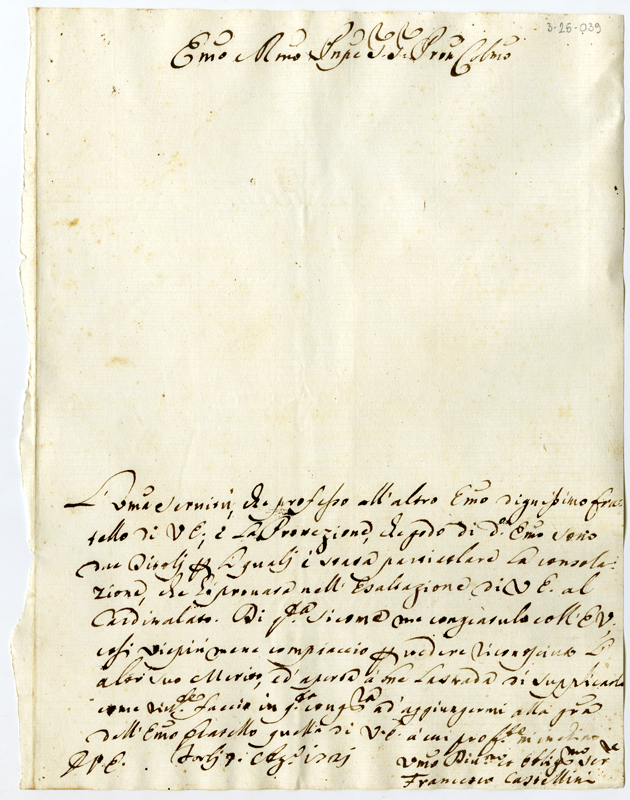 3-26-039
Emo Rmo Pnpe Sr. Sr. Pron Colmo
L'Uma servitù, che professo all'altro Emo dignissimo fra-
tello di V.E., e La Protezione, che godo di do Emo sono
due titoli p i quali è stata particolare La consola-
zione, che hò provata nell'Esaltazione di V.E. al
Cardinalato. Di q.ta sicome me congratulo coll'E.V.
così viepiù mene compiaccio p vedere riconosciuto L'
alto suo Merito, ed aperta à me La strada di supplicarla
come faccio in q.ta ad aggiungermi alla gra
dell'Emo fratello quella di V.E. à cui m'inchino
D.V.E. Forlì
Umo Obbligmo Serre
Francesco Castellini